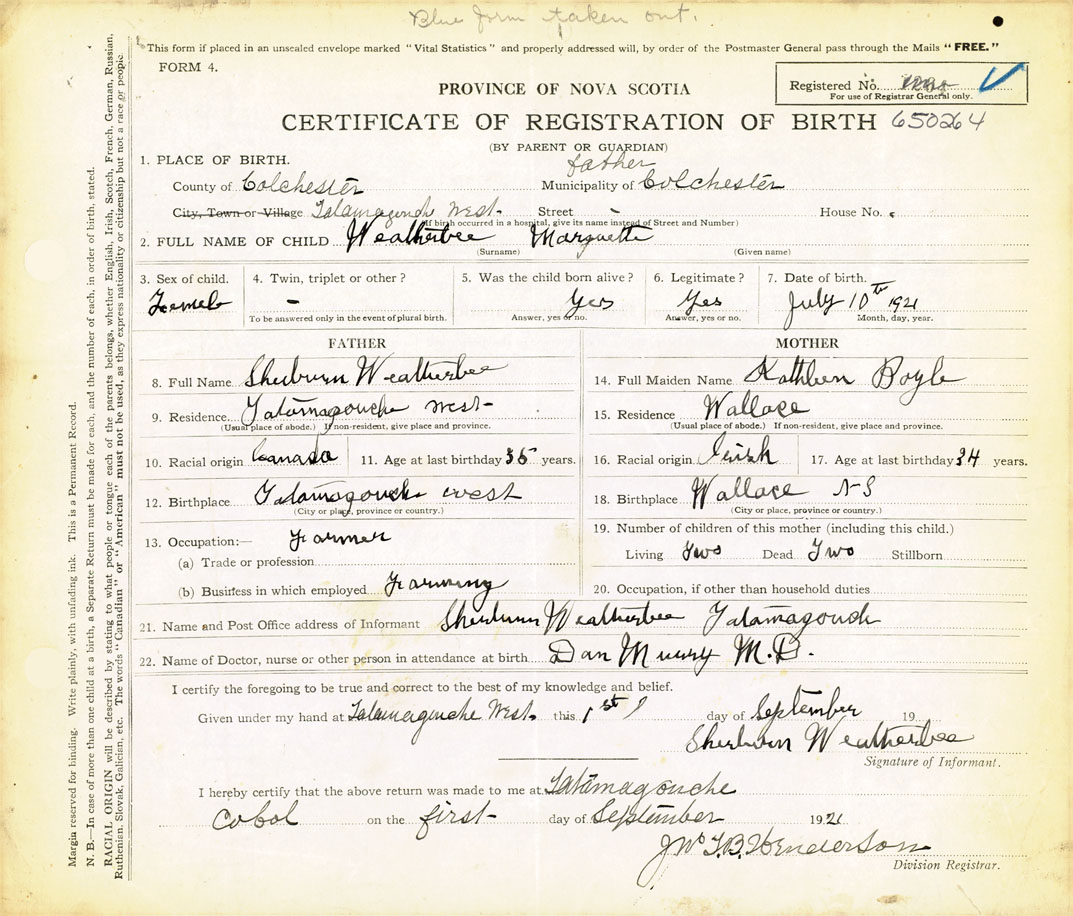 Blue form taken out.
This form if placed in an unsealed envelope marked "Vital Statistics" and properly addressed will, by order of the Postmaster General pass through the Mails "FREE."
FORM 4.
Registered No.
For use of Registrar General only.
PROVINCE OF NOVA SCOTIA
CERTIFICATE OF REGISTRATION OF BIRTH 650264
(BY PARENT OR GUARDIAN)
father
1. PLACE OF BIRTH.
County of Colchester Municipality of Colchester
City, Town or Village Tatamagouche West. Street - House No.
(If birth occurred in a hospital, give its name instead of Street and Number)
2. FULL NAME OF CHILD Weatherbee Marguette
(Surname) (Given name)
3. Sex of child. 4. Twin, triplet or other? 5. Was the child born alive? 6. Legitimate? 7. Date of birth.
Female - Yes Yes July 10th 1921
To be answered only in the event of plural birth. Answer, yes or no. Answer, yes or no. Month, day, year.
FATHER
8. Full Name Sherburn Weatherbee
9. Residence Tatamagouche West-
(Usual place of abode.) If non-resident, give place and province.
10. Racial origin Canada 11. Age at last birthday 35 years.
12. Birthplace Tatamagouche west
(City or place, province or country.)
13. Occupation:— Farmer
(a) Trade or profession
(b) Business in which employed Farming
MOTHER
14. Full Maiden Name Kathleen Boyle
15. Residence Wallace
(Usual place of abode.) If non-resident, give place and province.
16. Racial origin Irish 17. Age at last birthday 34 years.
18. Birthplace Wallace NS
(City or place, province or country.)
19. Number of children of this mother (including this child.)
Living Two Dead Two Stillborn
20. Occupation, if other than household duties
21. Name and Post Office address of Informant Sherburn Weatherbee Tatamagouch
22. Name of Doctor, nurse or other person in attendance at birth Dan Murry M.D.
I certify the foregoing to be true and correct to the best of my knowledge and belief.
Given under my hand at Tatamagouche West. this 1st day of September 19
Sherburn Weatherbee
Signature of Informant.
I hereby certify that the above return was made to me at Tatamagouche
on the first day of September 1921
Henderson
Division Registrar.
Margin reserved for binding. Write plainly, with unfading ink. This is a Permanent Record.
N. B.—In case of more than one child at a birth, a Separate Return must be made for each, and the number of each, in order of birth, stated.
RACIAL ORIGIN will be described by stating to what people or tongue each of the parents belongs, whether English, Irish, Scotch, French, German, Russian,
Ruthenian, Slovak, Galician, etc. The words "Canadian" or "American" must not be used, as they express nationality or citizenship but not a race or people